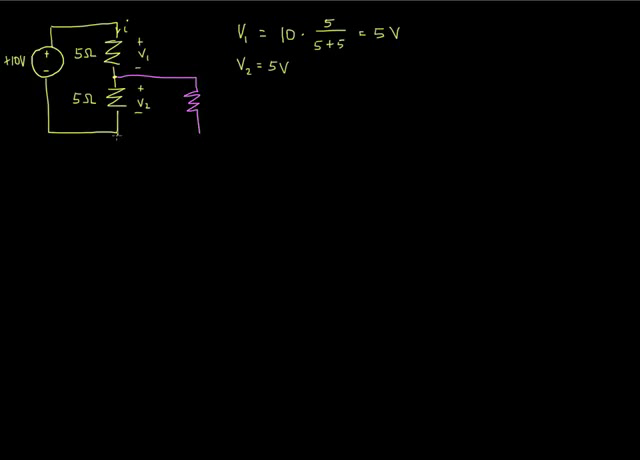 i
+10V
+
-
5Ω
+
V₁
-
5Ω
+
V₂
-
V₁ = 10 · 5/(5+5) = 5V
V₂ = 5V